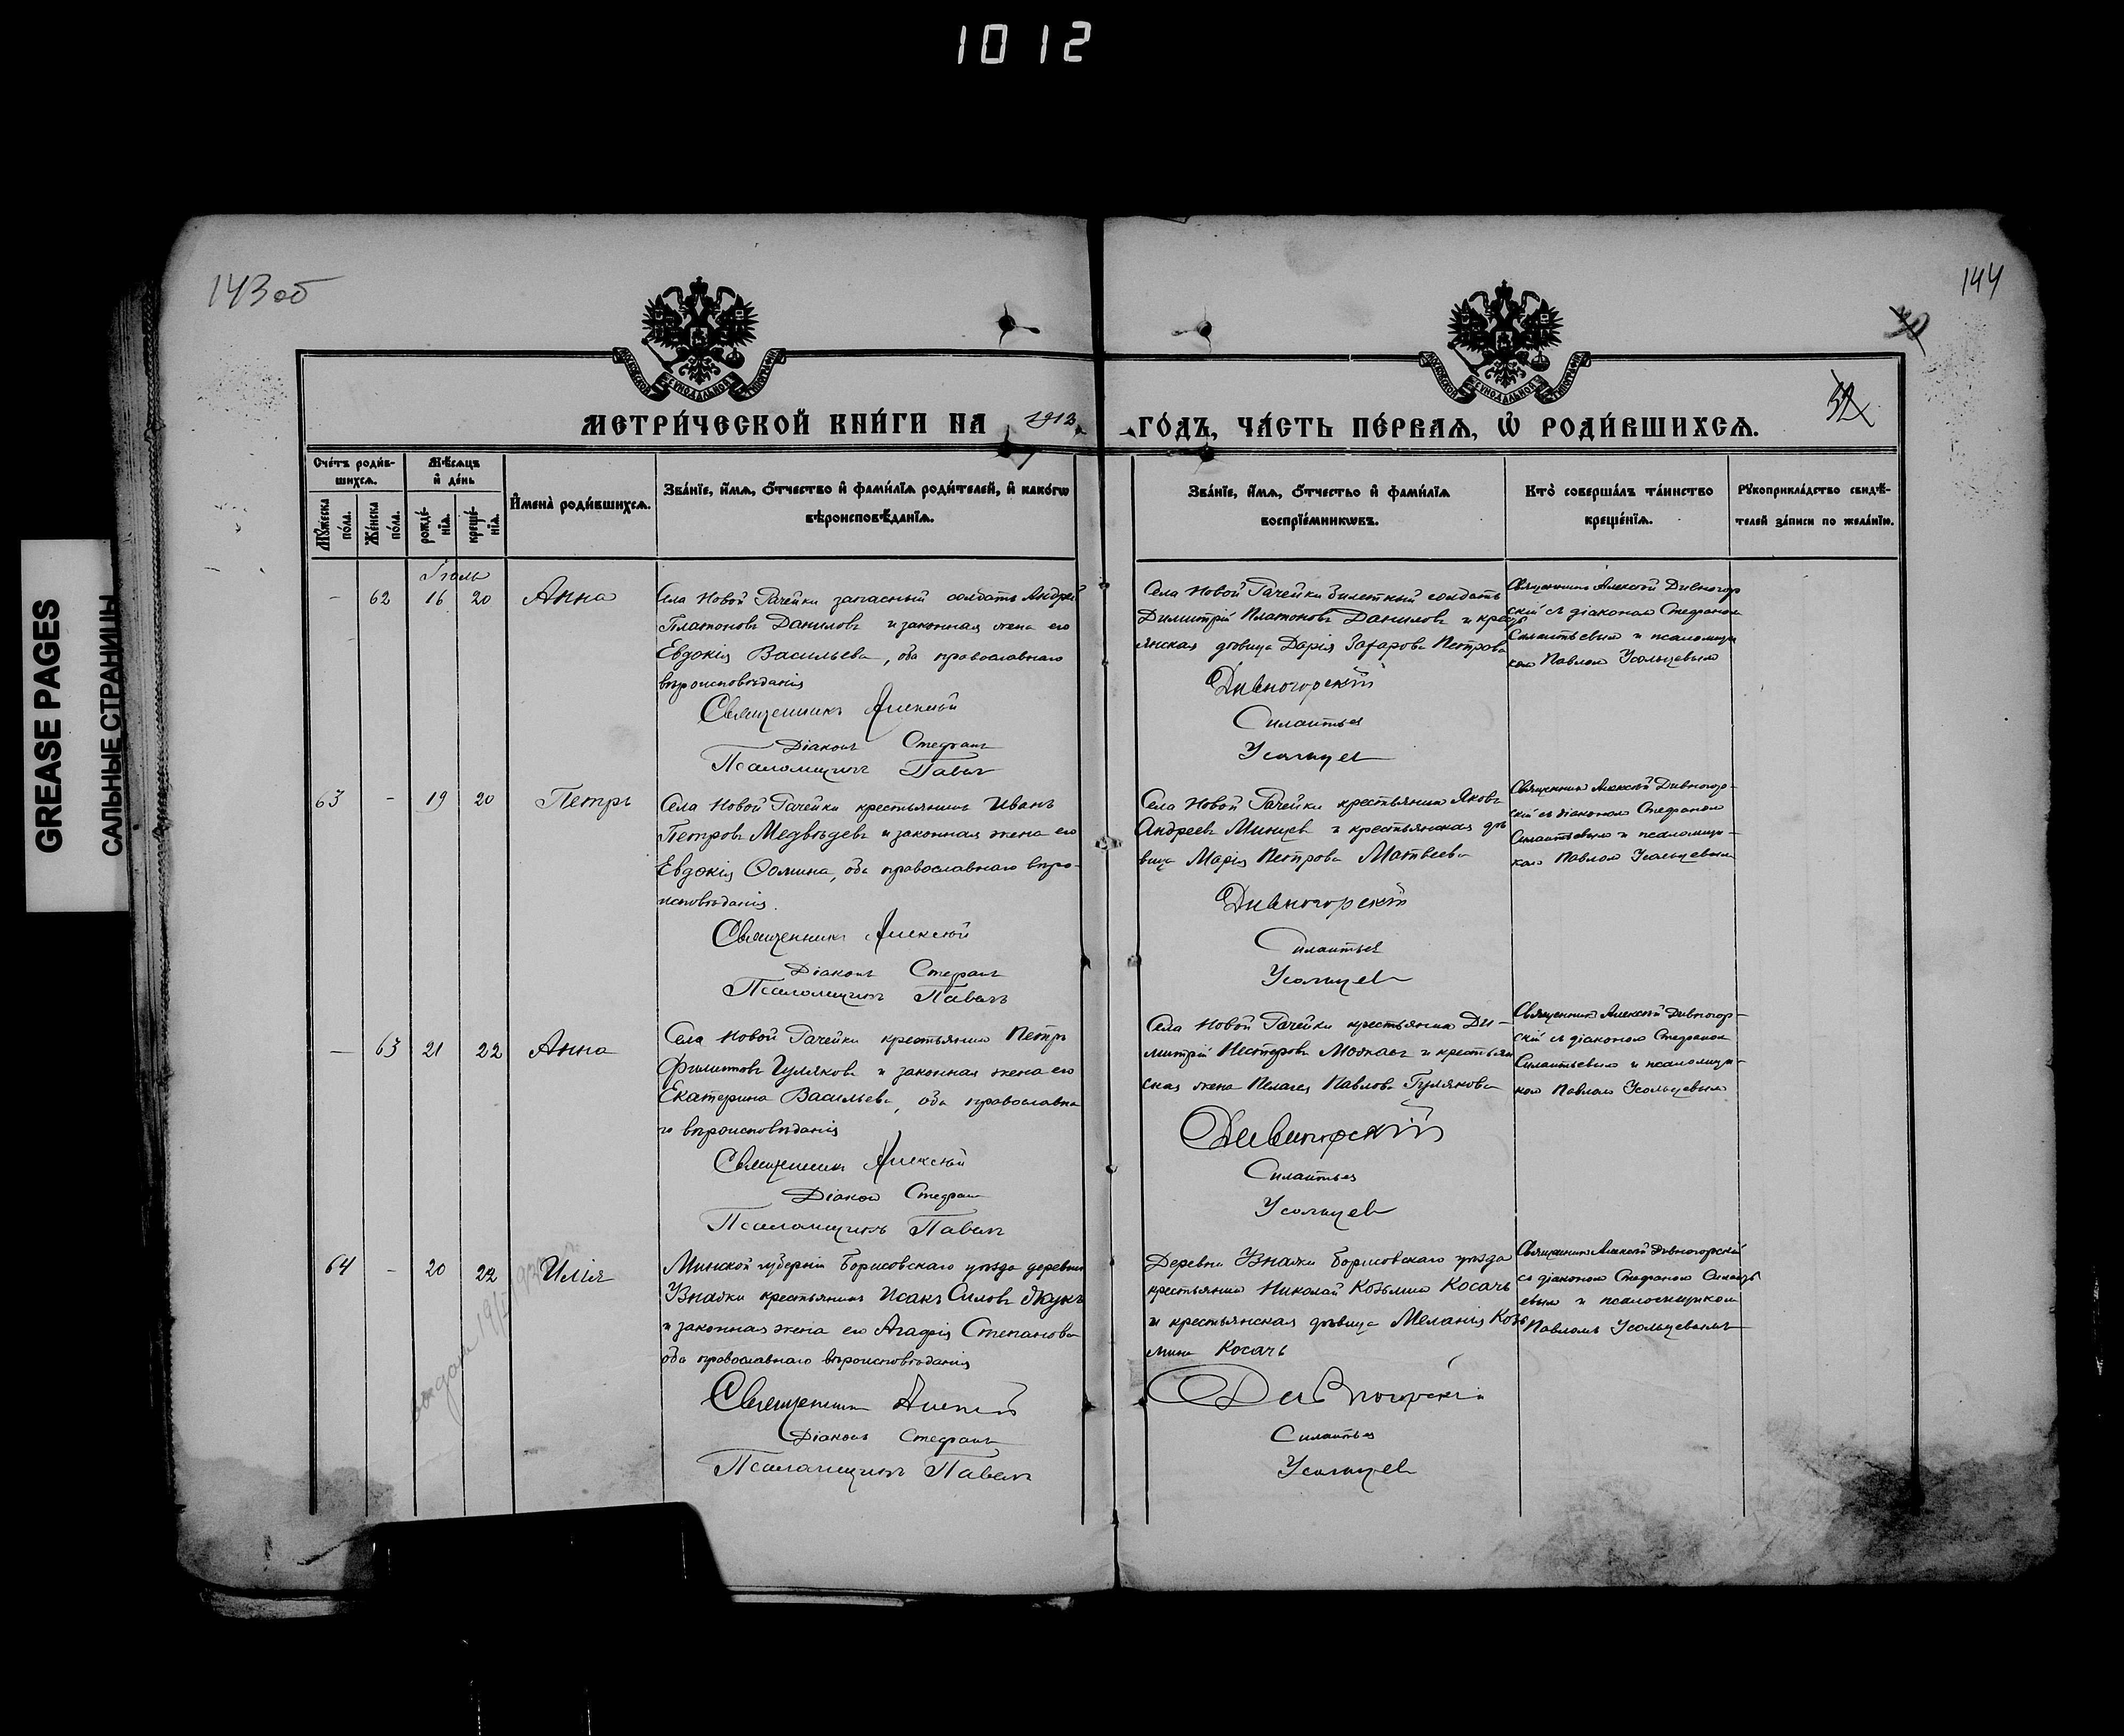 1012
143об
144
30
32
GREASE PAGES
САЛЬНЫЕ СТРАНИЦЫ
МЕТРИ́ЧЕСКОЙ КНИ́ГИ НА 1913 ГО́ДЪ, ЧА́СТЬ ПЕ́РВАѦ, Ѽ РОДИ́ВШИХСѦ.
Сче́тъ роди́вшихсѧ.
Мꙋ́жеска по́ла.
Же́нска по́ла.
Мѣ́сѧцъ и҆ де́нь
рожде́нїѧ.
креще́нїѧ.
И҆мена̀ роди́вшихсѧ.
Зва́нїе, и҆́мѧ, ѻ҆́тчество и҆ фами́лїѧ роди́телей, и҆ како́гѡ
вѣроисповѣ́данїѧ.
Зва́нїе, и҆́мѧ, ѻ҆́тчество и҆ фами́лїѧ
воспрїе́мникѡвъ.
Кто̀ соверша́лъ та́инство
креще́нїѧ.
Рꙋкоприкла́дство свидѣ́-
телей за́писи по жела́нїю.
Іюль
– 62 16 20 Анна
Села Новой Рачейки запасный солдатъ Андрей
Платоновъ Даниловъ и законная жена его
Евдокія Васильева, оба православнаго
вѣроисповѣданія
Священникъ Алексій
Діаконъ Стефанъ
Псаломщикъ Павелъ
Села Новой Рачейки билетный солдатъ
Димитрій Платоновъ Даниловъ и кресть
янская дѣвица Дарія Захарова Петрова
Дивногорскій
Силантьев
Усольцев
Священникъ Алексій Дивногор
скій съ діакономъ Стефаномъ
Силантьевымъ и псаломщи
комъ Павломъ Усольцевымъ
63 – 19 20 Петръ
Села Новой Рачейки крестьянинъ Иванъ
Петровъ Медвѣдевъ и законная жена его
Евдокія Ѳомина, оба православнаго вѣро-
исповѣданія.
Священникъ Алексій
Діаконъ Стефанъ
Псаломщикъ Павелъ
Села Новой Рачейки крестьянинъ Яковъ
Андреевъ Минцев и крестьянская дѣ
вица Марія Петрова Матвеева
Дивногорскій
Силантьев
Усольцев
Священникъ Алексій Дивногор-
скій съ діакономъ Стефаномъ
Силантьевымъ и псаломщи-
комъ Павломъ Усольцевымъ
– 63 21 22 Анна
Села Новой Рачейки крестьянинъ Петръ
Филипповъ Гуляковъ и законная жена его
Екатерина Васильева, оба православна
го вѣроисповѣданія
Священникъ Алексій
Діаконъ Стефанъ
Псаломщикъ Павелъ
Села Новой Рачейки крестьянинъ Ди-
митрій Несторовъ и крестьян
ская жена Пелагея Павлова Гулякова
Дивногорскій
Силантьев
Усольцев
Священникъ Алексій Дивногор-
скій съ діакономъ Стефаномъ
Силантьевымъ и псаломщи-
комъ Павломъ Усольцевымъ
64 – 20 22 Илія
Минской губерніи Борисовскаго уѣзда деревни
Узнажи крестьянинъ Исакъ Силовъ Жукъ
и законная жена его Агафія Степанова
оба православнаго вѣроисповѣданія
Священникъ Алексій
Діаконъ Стефанъ
Псаломщикъ Павелъ
Деревни Узнажи Борисовскаго уѣзда
крестьянинъ Николай Козьминъ Косачъ
и крестьянская дѣвица Меланія Козь
мина Косачъ
Дивногорскій
Силантьев
Усольцев
Священникъ Алексій Дивногорскій
съ діакономъ Стефаномъ Силанть
евымъ и псаломщикомъ
Павломъ Усольцевымъ